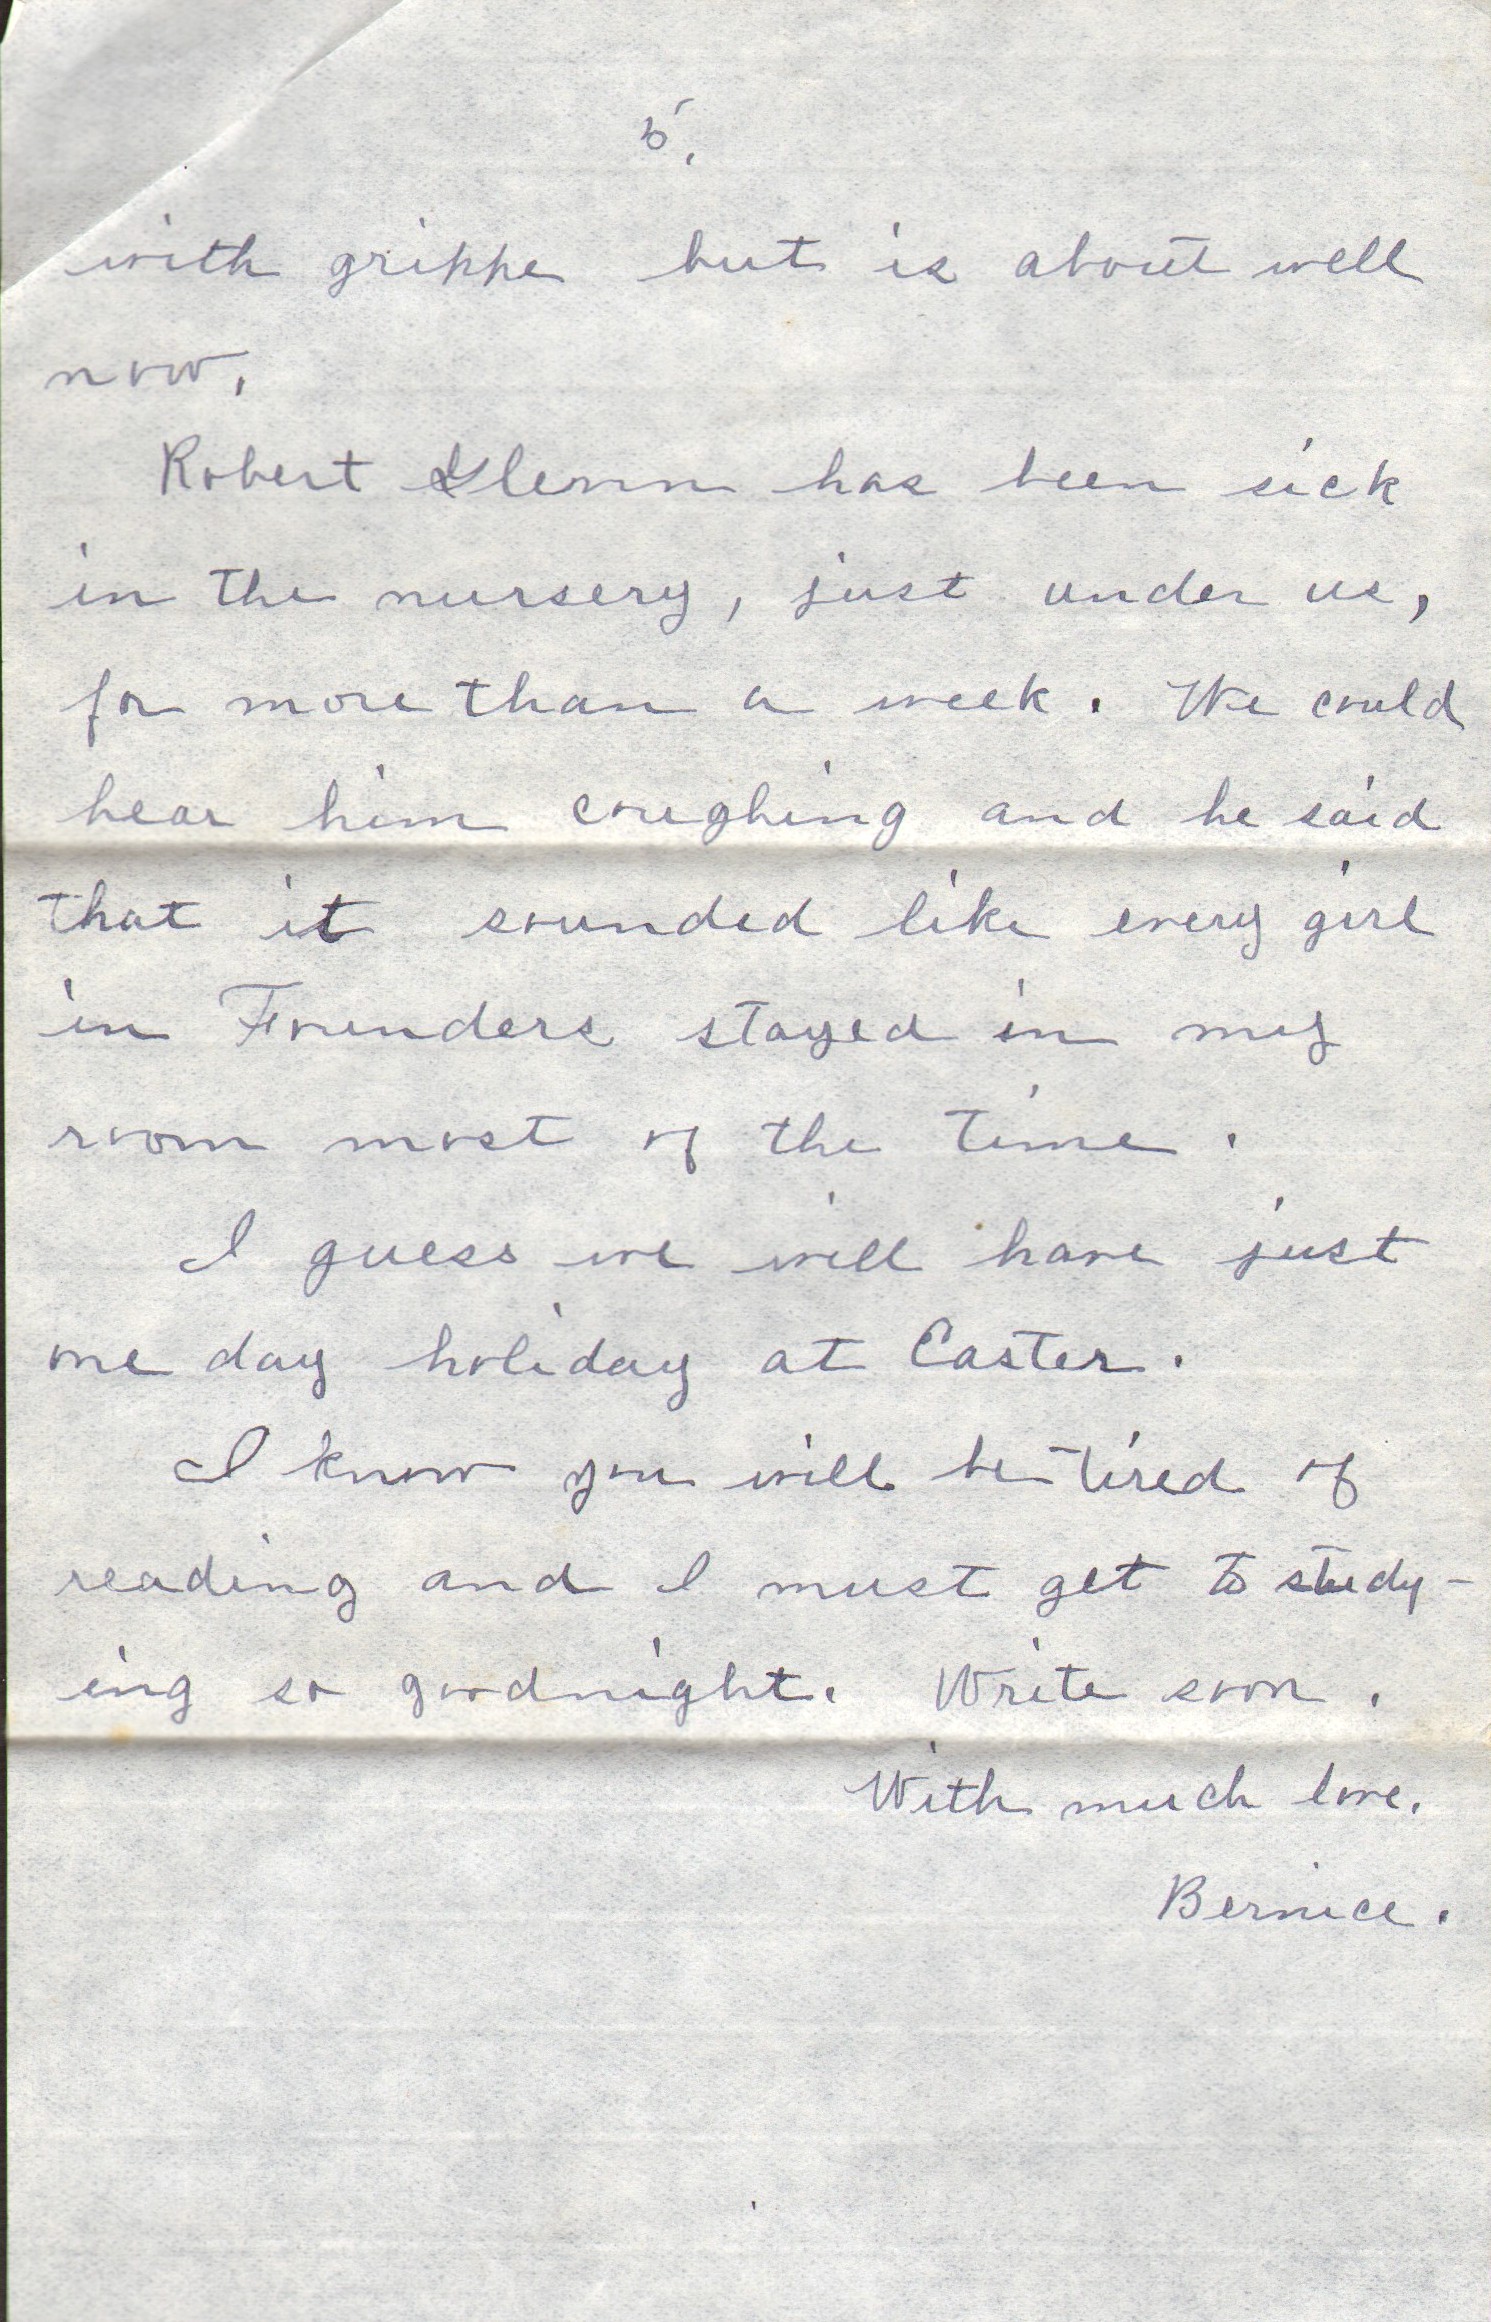 5.
with grippe but is about well
now.
Robert Glenn has been sick
in the nursery, just under us,
for more than a week. We could
hear him coughing and he said
that it sounded like every girl
in Founders stayed in my
room most of the time.
I guess we will have just
one day holiday at Easter.
I know you will be tired of
reading and I must get to study-
ing so goodnight. Write soon.
With much love.
Bernice.